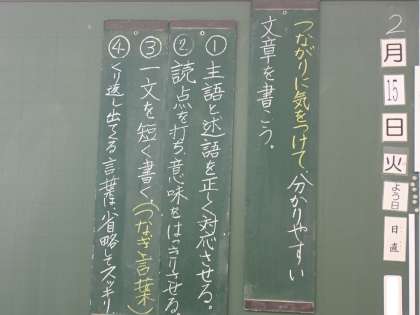 2月15日火よう日
日直
つながりに気をつけて、分かりやすい
文章を書こう。
①主語と述語を正しく対応させる。
②読点を打ち、意味をはっきりさせる。
③一文を短く書く。(つなぎ言葉)
④くり返し出てくる言葉は、省略してスッキリ